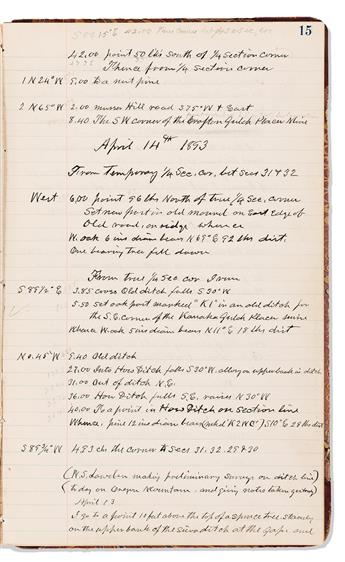 15
42.00 point 50 lks south of 1/4 section corner
Thence from 1/4 section corner
1 N 24° W 5.00 to a nut pine
2 N 65° W 2.00 Hill road S 75° W & East
8.40 The S W corner of the Grafton Gulch Placer Mine
April 14th 1893
From temporary 1/4 sec. cor. bet secs 31 & 32
West 6.00 point 96 lks North of true 1/4 sec. corner
Set new post in old mound on East edge of
old road, on ridge whence
W. oak 6 ins diam bears N 69° E 92 lks dist.
One bearing tree fell down
From true 1/4 sec cor From
S 85 1/2° E 3.85 Old ditch falls S 30° W.
5.50 Set oak post marked "K1" in an old ditch for
the S.E. corner of the Kanaka Gulch Placer mine
Whence W. oak 5 ins diam bears N 11° E 18 lks dist
No. 45° W 5.40 Old ditch
27.00 Into How Ditch falls S 30° W. along on upper bank in ditch
31.00 Out of ditch N.E.
36.00 How Ditch falls S.E. raises N 30° W
40.00 To a point in How Ditch on Section line
Whence, pine 12 ins diam bears S 10° E 28 lks dist
S 85 3/4° W 4.83 chs the corner to secs 31. 32. 29 & 30
(W.S. making preliminary survey on ditch line
to day on Oregon Mountain, and giving notes
April 13
I go to a point 10 feet above the top of a spruce tree, standing
on the upper bank of the ditch at the Gap, and